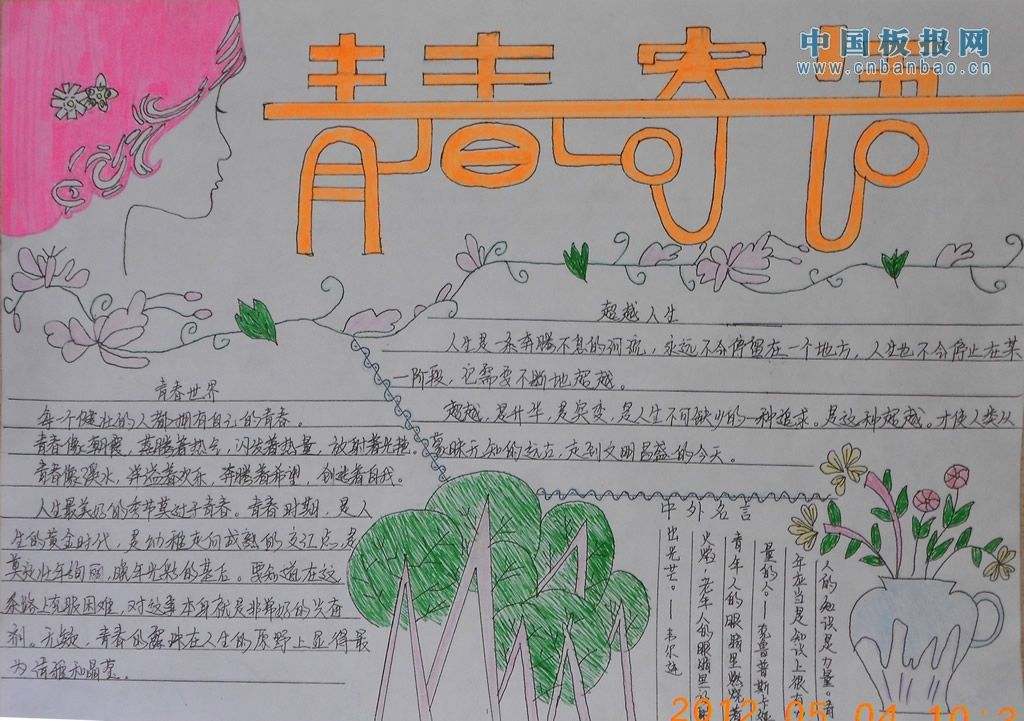 青春寄语
中国板报网
www.cnbanbao.cn
超越人生
人生是一条奔腾不息的河流，永远不会停留在一个地方，人生也不会停止在某
一阶段，它需要不断地超越。
超越，是升华，是突变，是人生不可缺少的一种追求。是这种超越，才使人类从
蒙昧无知的远古，走到文明昌盛的今天。
青春世界
每一个健壮的人都拥有自己的青春。
青春像朝霞，蒸腾着热气，闪发着热量，放射着光艳。
青春像溪水，洋溢着欢乐，奔腾着希望，创造着自我。
人生最美好的季节莫过于青春。青春时期，是人
生的黄金时代，是幼稚走向成熟的交汇点，是
莫效壮年绚丽，晚年光彩的基石。要知道在这
条路上克服困难，对这事本身就是非常好的兴奋
剂。无疑，青春的露珠在人生的原野上显得最
为清雅和晶莹。
中外名言
人的知识是力量。青
年应当是知识上很有
量的人。——克鲁普斯卡娅
青年人的眼睛里燃烧着
火焰，老年人的眼睛里放射
出光芒。——
2012.05.04 10:3